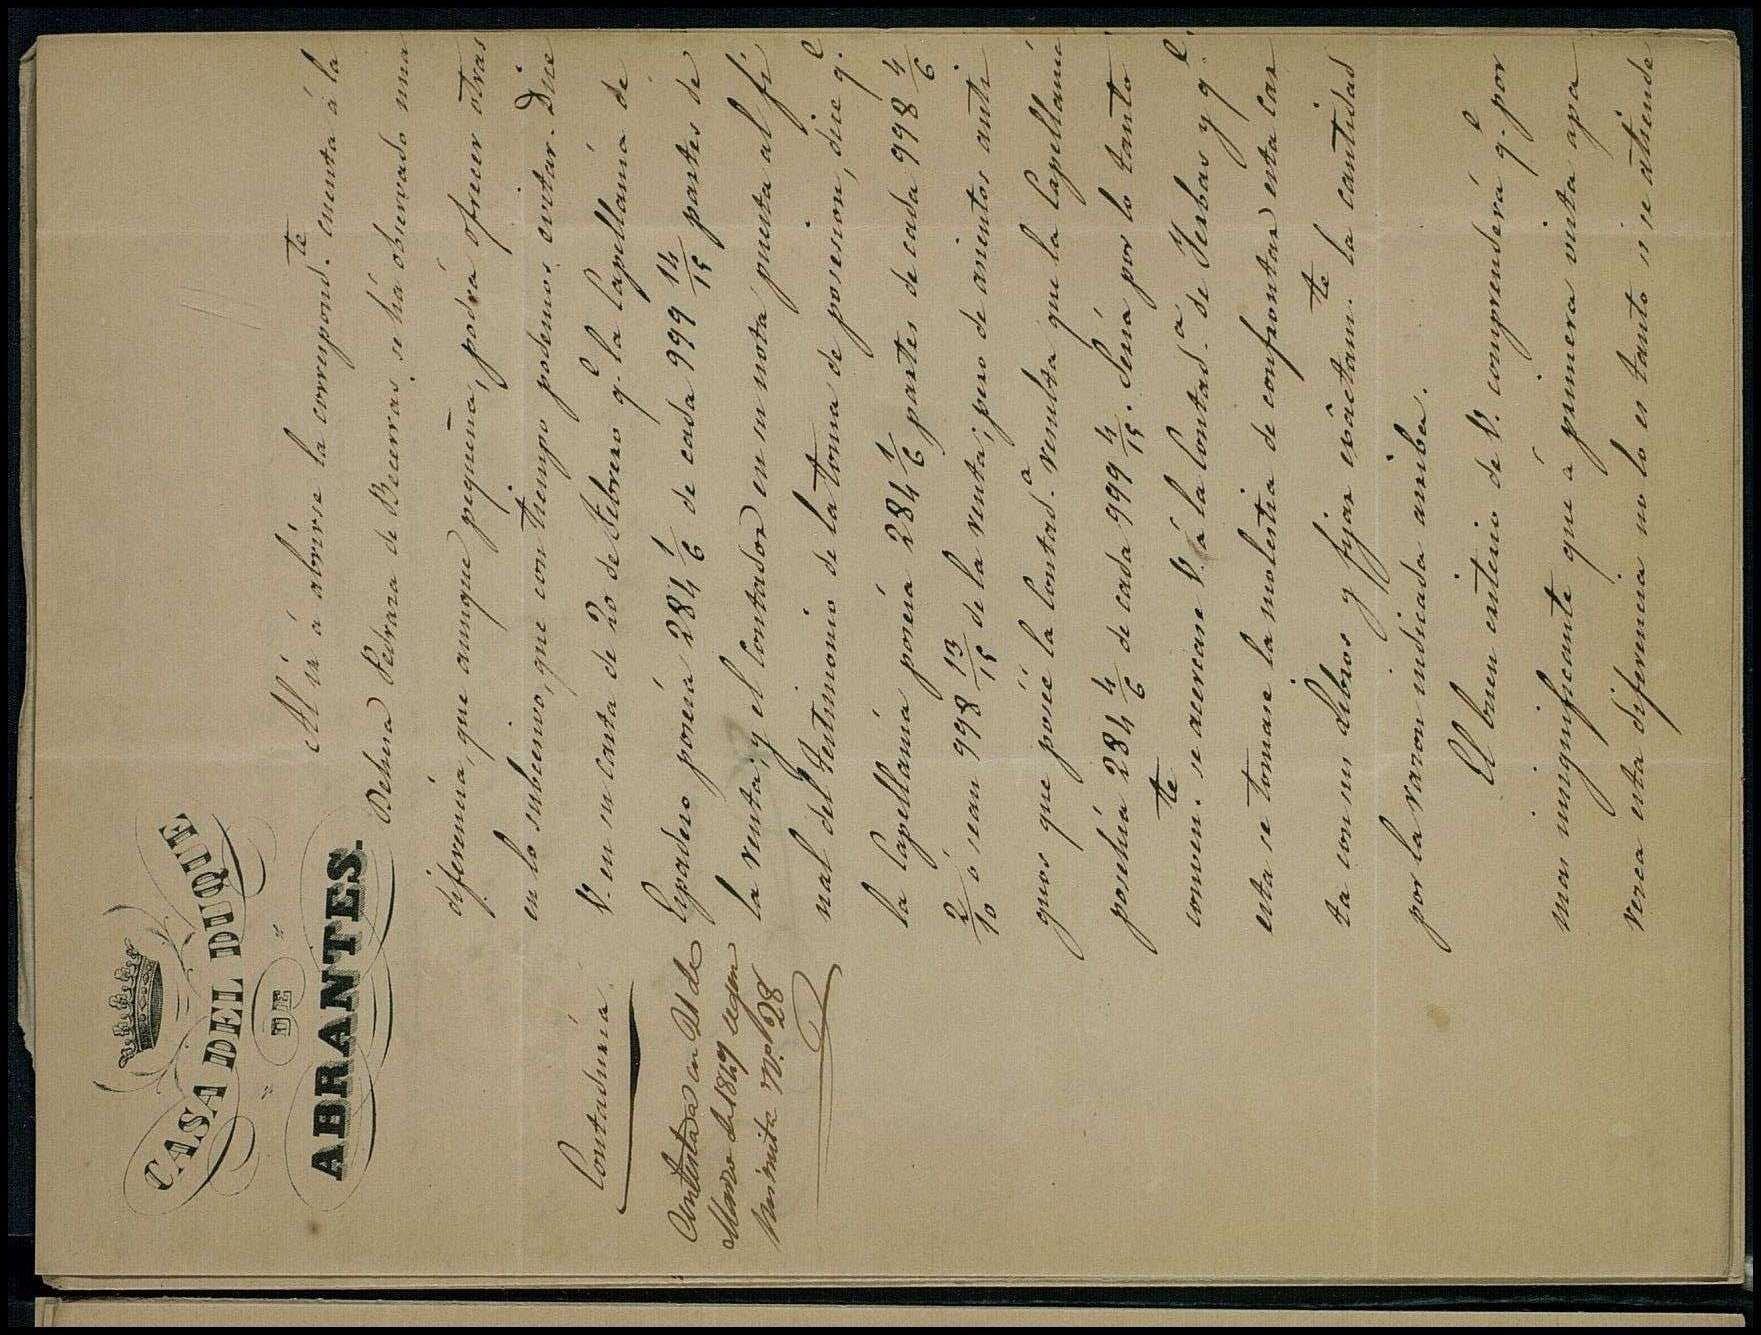 CASA DEL DUQUE
DE
ABRANTES.
Contaduría
Contestada en 21 de
Marzo de 1849 segun
minuta N.º 28
Al ir á abrirse la correspond.te cuenta á la
Dehesa Pedraza de Becerras, se há observado una
diferencia, que aunque pequeña, podrá ofrecer otras
en lo subcecivo, que con tiempo podemos evitar. Dice
V. en su carta de 20 de Febrero q.e la Capellanía de
Espadero poseía 284 1/6 de cada 999 14/15 partes de
la renta; y el Contador en su nota puesta al fi
nal del testimonio de la toma de posesion, dice q.e
la Capellanía poseía 284 1/6 partes de cada 998 4/6
2/10 ó sean 998 13/15 de la renta; pero de asientos anti
guos que poseé la Contad.a resulta que la Capellanía
posehia 284 4/6 de cada 999 4/15. Sería por lo tanto
conven.te se acercase V. á la Contad.a de Yerbas y q.e
esta se tomase la molestia de confrontar esta car
ta con sus libros y fijar exactam.te la cantidad
por la razon indicada arriba.
El buen criterio de V. comprenderá q.e por
mas insignificante que á primera vista apa
rezca esta diferencia no lo es tanto si se atiende